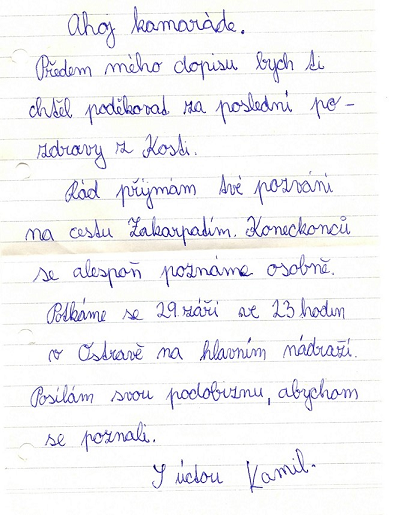 Ahoj kamaráde.
Předem mého dopisu bych ti
chtěl poděkovat za poslední po-
zdravy z Kosti.
Rád přijmám tvé pozvání
na cestu Zakarpatím. Koneckonců
se alespoň poznáme osobně.
Potkáme se 29. září ve 23 hodin
v Ostravě na hlavním nádraží.
Posílám svou podobiznu, abychom
se poznali.
S úctou Kamil.